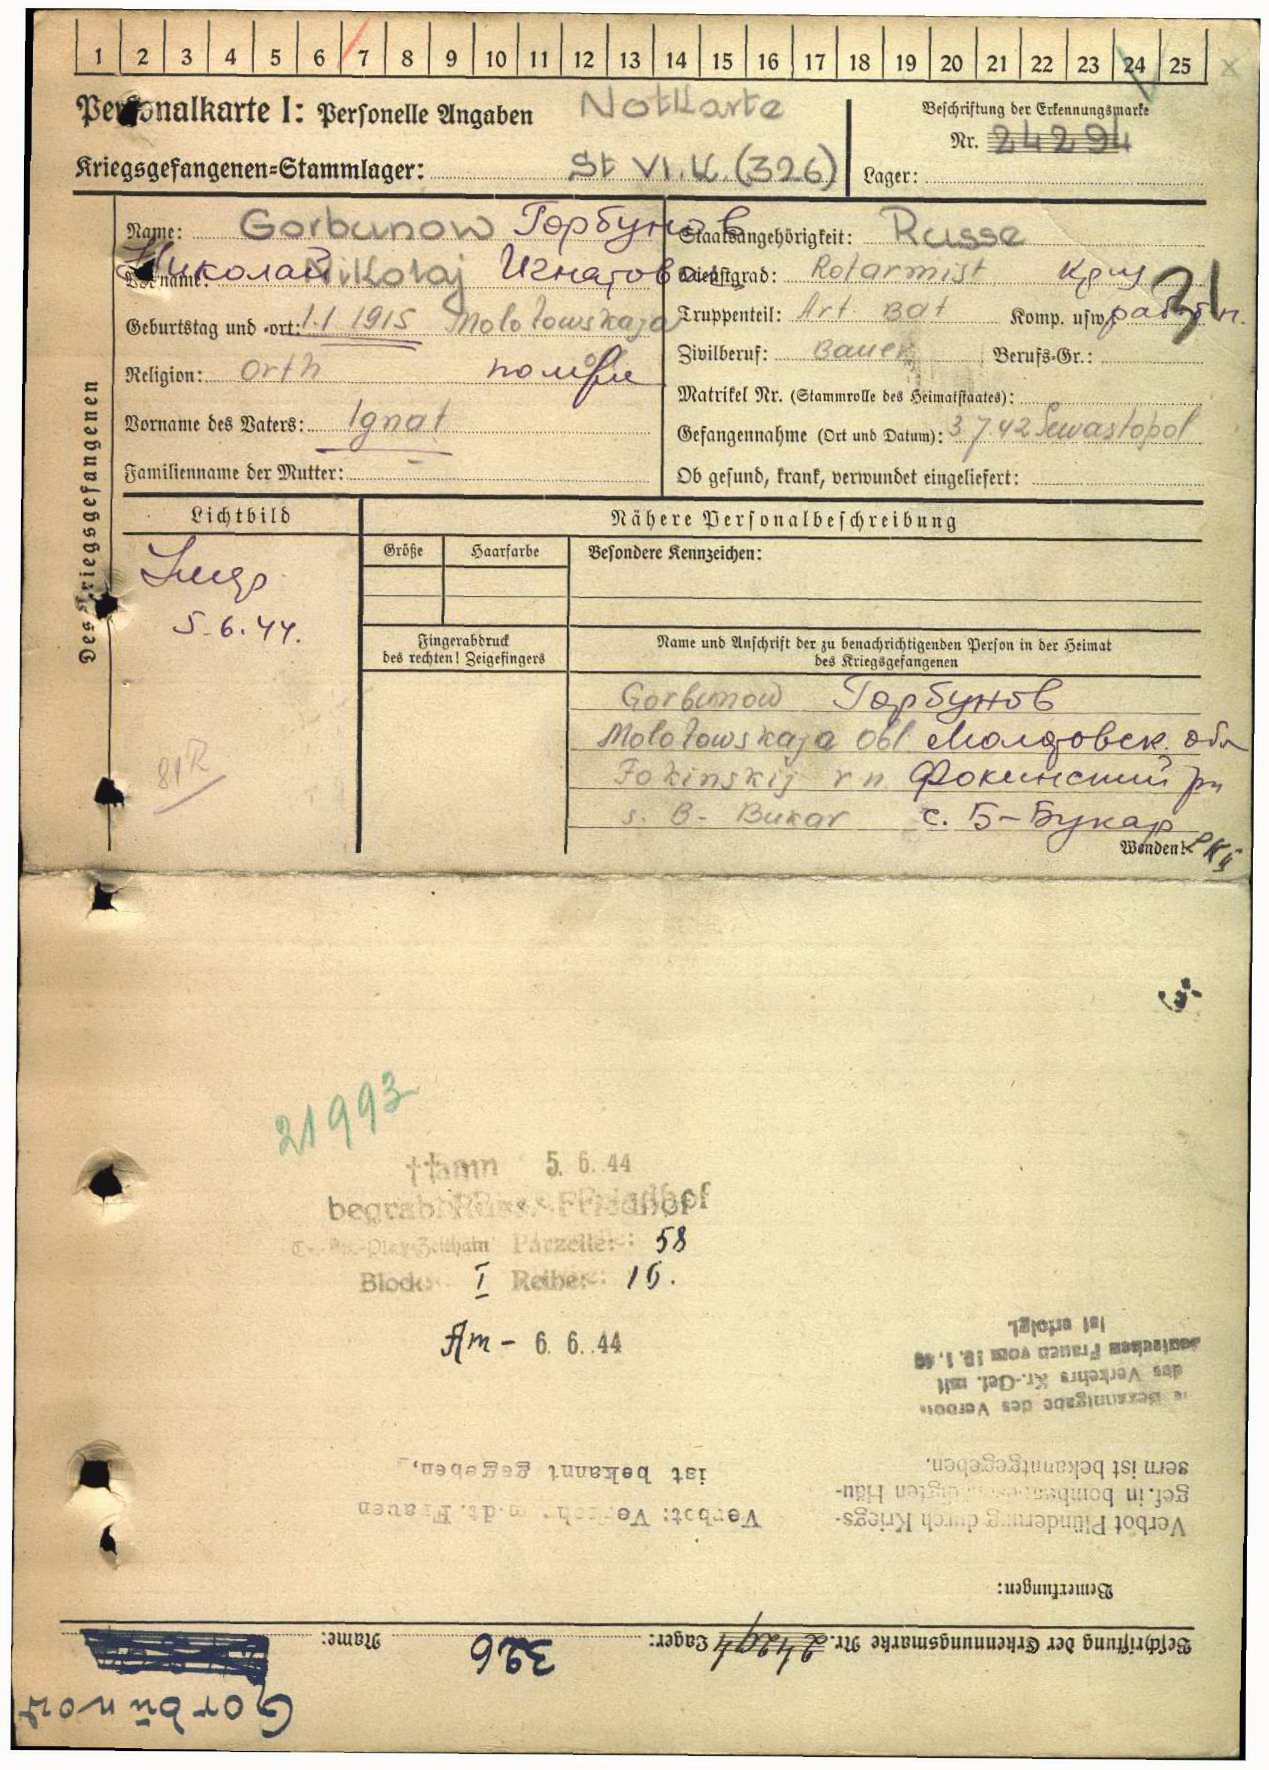 1 2 3 4 5 6 7 8 9 10 11 12 13 14 15 16 17 18 19 20 21 22 23 24 25
Personalkarte I: Personelle Angaben Notkarte
Beschriftung der Erkennungsmarke
Nr. 24294
Kriegsgefangenen-Stammlager: St VI.K. (326)
Lager:
Des Kriegsgefangenen
Name: Gorbunow Горбунов
Vorname: Николай Nikolaj Игнатович
Geburtstag und -ort: 1.1 1915 Molotowskaja
Religion: Orth
Vorname des Vaters: Ignat
Familienname der Mutter:
Staatsangehörigkeit: Russe
Dienstgrad: Rotarmist
Truppenteil: Art. Bat Komp. usw.
31
Zivilberuf: Bauer Berufs-Gr.:
Matrikel Nr. (Stammrolle des Heimatstaates):
Gefangennahme (Ort und Datum): 3 7.42 Sewastopol
Ob gesund, krank, verwundet eingeliefert:
Lichtbild
Nähere Personalbeschreibung
Größe Haarfarbe Besondere Kennzeichen:
5.6.44.
Fingerabdruck
des rechten! Zeigefingers
Name und Anschrift der zu benachrichtigenden Person in der Heimat
des Kriegsgefangenen
Gorbunow Горбунов
Molotowskaja Obl Молотовск. обл
Fokinskij rn Фокинский рн
s. B- Bukar с. Б-Букар
Wenden!
21993
Hamn 5. 6. 44
begrab. Russ. Friedhof
Parzelle: 58
Block: I Reihe: 16.
Am - 6. 6. 44
ist erfolgt.
deutschen Frauen vom
des Verkehrs Kr.-Gef. mit
Bekanntgabe des Verbots
ist bekannt gegeben,
Verbot: Verkehr m.dt. Frauen
sern ist bekanntgegeben.
gef. in bombengeschädigten Häu-
Verbot Plünderung durch Kriegs-
Bemerkungen:
Beschriftung der Erkennungsmarke Nr. 24294 Lager: 326 Name:
Gorbunow